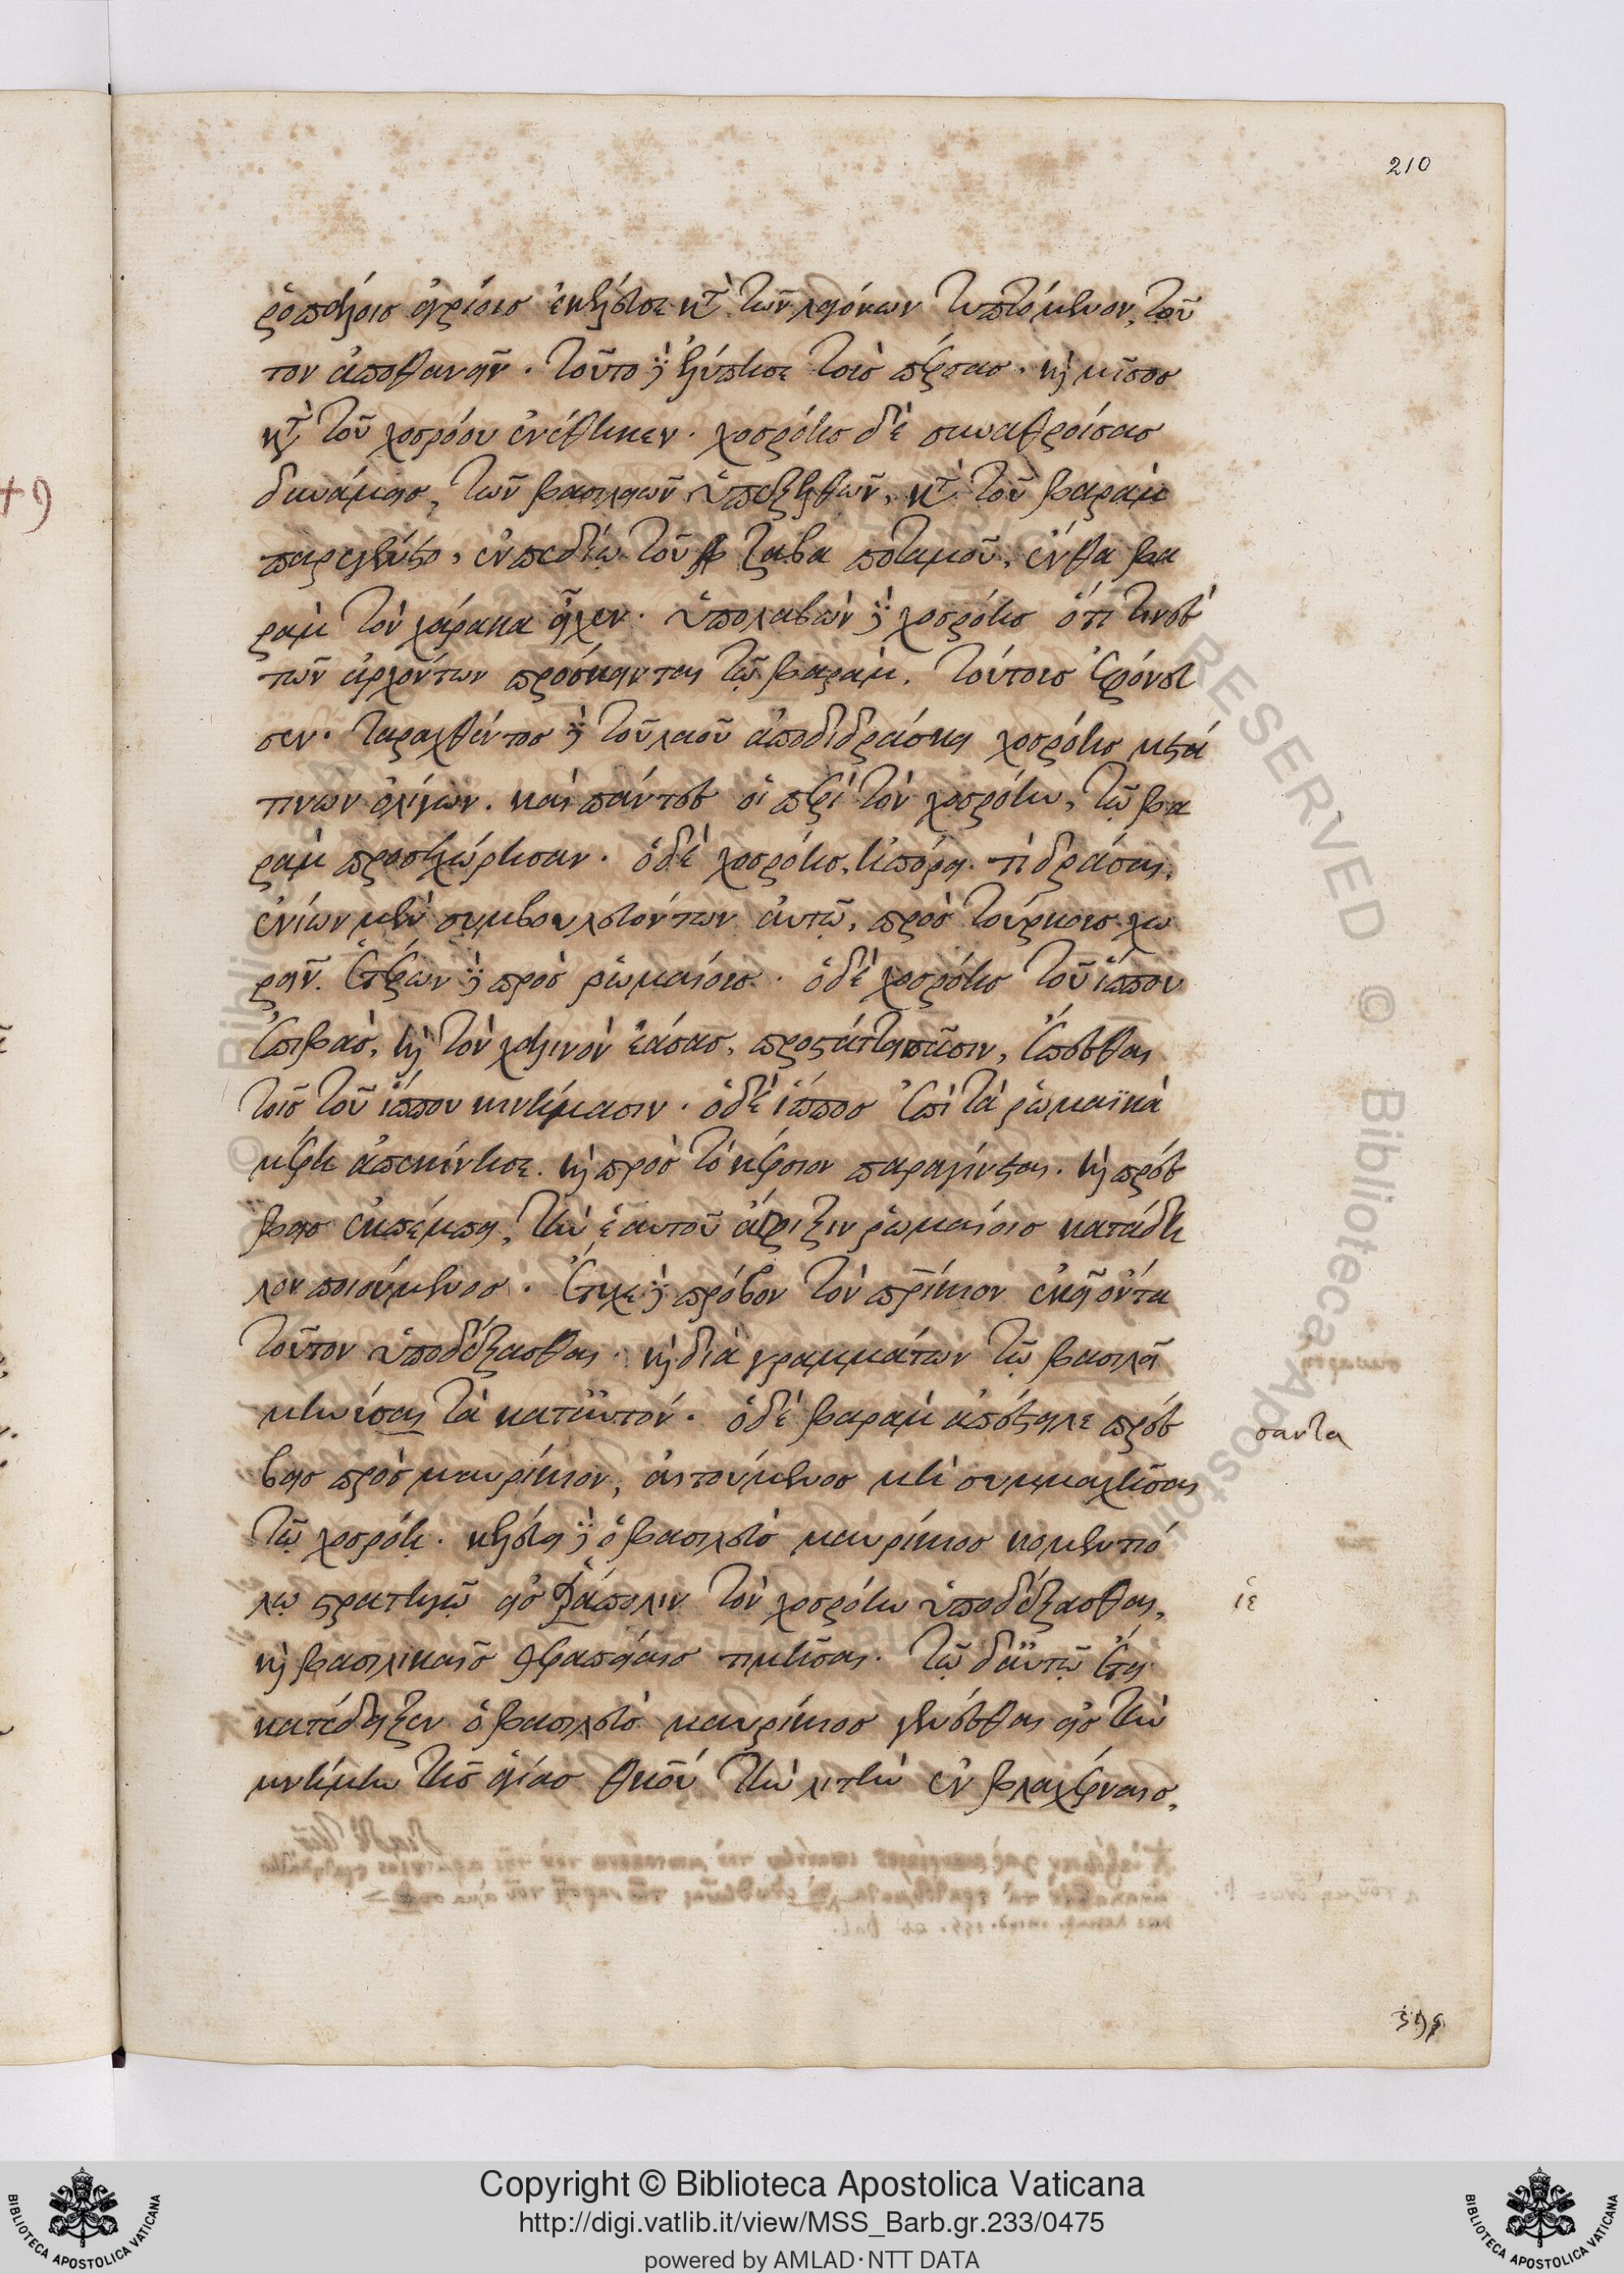 210
ῥοπάλοις ἀγρίοις ἐκέλευσε κατὰ τῶν λαγόνων τυπτόμενον, τοῦ
τον ἀποθανεῖν. τοῦτο δὲ ἐλύπησε τοὺς πέρσας. καὶ μῖσος
κατὰ τοῦ χοσρόου ἐνέθηκεν. χοσρόης δὲ συναθροίσας
δυνάμεις, τῶν βασιλείων ὑπεξελθὼν, κατὰ τοῦ βαρὰμ
παρεγένετο, ἐν πεδίῳ τοῦ ζαβα ποταμοῦ, ἔνθα βα
ρὰμ τὸν χάρακα εἶχεν. ὑπολαβὼν δὲ χοσρόης ὅτι τινὲς
τῶν ἀρχόντων πρόσκεινται τῷ βαρὰμ, τούτους ἐφόνευ
σεν. ταραχθέντος δὲ τοῦ λαοῦ ἀποδιδράσκει χοσρόης μετά
τινων ὀλίγων. καὶ πάντες οἱ περὶ τὸν χοσρόην, τῷ βα
ρὰμ προσεχώρησαν. ὁ δὲ χοσρόης, ἠπόρει τί δράσαι,
ἐνίων μὲν συμβουλευόντων αὐτῷ, πρὸς τούρκους χω
ρεῖν. ἑτέρων δὲ πρὸς ῥωμαίους. ὁ δὲ χοσρόης τοῦ ἵππου
ἐπιβὰς, καὶ τὸν χαλινὸν ἐάσας, προσέταττε πᾶσιν, ἕπεσθαι
τοῖς τοῦ ἵππου κινήμασιν. ὁ δὲ ἵππος ἐπὶ τὰ ῥωμαϊκὰ
μέρη ἀπεκίνησε. καὶ πρὸς τὸ κιρκίσιον παραγίνεται. καὶ πρέσ
βεις ἐκπέμπει, τὴν ἑαυτοῦ ἄφιξιν ῥωμαίοις κατάδη
λον ποιούμενος. ἔτυχε δὲ πρόβον τὸν πατρίκιον ἐκεῖ ὄντα
τοῦτον ὑποδέξασθαι. καὶ διὰ γραμμάτων τῷ βασιλεῖ
μηνύσαι τὰ κατ' αὐτόν. ὁ δὲ βαρὰμ ἀπέστειλε πρέσ
βεις πρὸς μαυρίκιον, αἰτούμενος μὴ συμμαχῆσαι
σαντα
τῷ χοσρόῃ. κελεύει δὲ ὁ βασιλεὺς μαυρίκιος κομεντιό
λῳ στρατηγῷ εἰς ἱεράπολιν τὸν χοσρόην ὑποδέξασθαι,
ἱε
καὶ βασιλικαῖς θεραπείαις τιμῆσαι. τῷ δ' αὐτῷ ἔτει
κατέδειξεν ὁ βασιλεὺς μαυρίκιος γενέσθαι εἰς τὴν
μνήμην τῆς ἁγίας θεοτόκου τὴν λιτὴν ἐν βλαχέρναις,
Copyright © Biblioteca Apostolica Vaticana
http://digi.vatlib.it/view/MSS_Barb.gr.233/0475
powered by AMLAD·NTT DATA
BIBLIOTECA APOSTOLICA VATICANA
BIBLIOTECA APOSTOLICA VATICANA